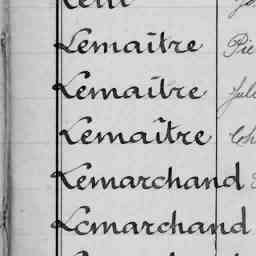 Lemaître Pie
Lemaître Jule
Lemaître
Lemarchand
Lemarchand